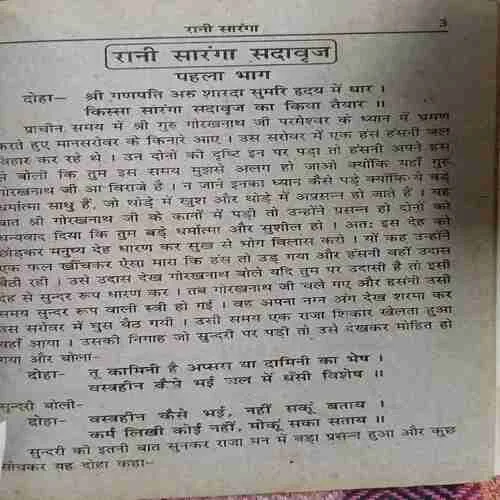 रानी सारंगा 3
रानी सारंगा सदावृज
पहला भाग
दोहा– श्री गणपति अरु शारदा सुमरि हृदय में धार ।
किस्सा सारंगा सदावृज का किया तैयार ॥
प्राचीन समय में श्री गुरु गोरखनाथ जी परमेश्वर के ध्यान में भ्रमण
करते हुए मानसरोवर के किनारे आए । उस सरोवर में एक हंस हंसनी जल
विहार कर रहे थे । उन दोनों की दृष्टि इन पर पड़ी तो हंसनी अपने हंस
से बोली कि तुम इस समय मुझसे अलग हो जाओ क्योंकि यहाँ गुरु
गोरखनाथ जी आ विराजे है । न जाने इनका ध्यान कैसे पड़े क्योंकि ये बड़े
धर्मात्मा साधु हैं, जो थोड़े में खुश और थोड़े में अप्रसन्न हो जाते है । यह
बात श्री गोरखनाथ जी के कानों में पड़ी तो उन्होंने प्रसन्न हो दोनों को
धन्यवाद दिया कि तुम बड़े धर्मात्मा और सुशील हो । अतः इस देह को
छोड़कर मनुष्य देह धारण कर सुख से भोग विलास करो । यों कह उन्होंने
एक फल खींचकर ऐसा मारा कि हंस तो उड़ गया और हंसनी वहीं उदास
बैठी रही । उसे उदास देख गोरखनाथ बोले यदि तुम पर उदासी है तो इसी
देह से सुन्दर रूप धारण कर । तब गोरखनाथ जी चले गए और हंसनी उसी
समय सुन्दर रूप वाली स्त्री हो गई । वह अपना नग्न अंग देख शरमा कर
उस सरोवर में घुस बैठ गयी । उसी समय एक राजा शिकार खेलता हुआ
वहाँ आया । उसकी निगाह जो सुन्दरी पर पड़ी तो उसे देखकर मोहित हो
गया और बोला–
दोहा– तू कामिनी है अप्सरा या दामिनी का भेष ।
वस्त्रहीन कैसे भई जल में धँसी विशेष ॥
सुन्दरी बोली–
दोहा– वस्त्रहीन कैसे भई, नहीं सकूं बताय ।
कर्म लिखी कोई नहीं, मोकूं सका सताय ॥
सुन्दरी की इतनी बात सुनकर राजा मन में बड़ा प्रसन्न हुआ और कुछ
सोचकर यह दोहा कहा–